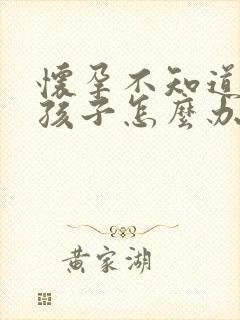 懷孕不知道
孩子怎麼办
黄家湖